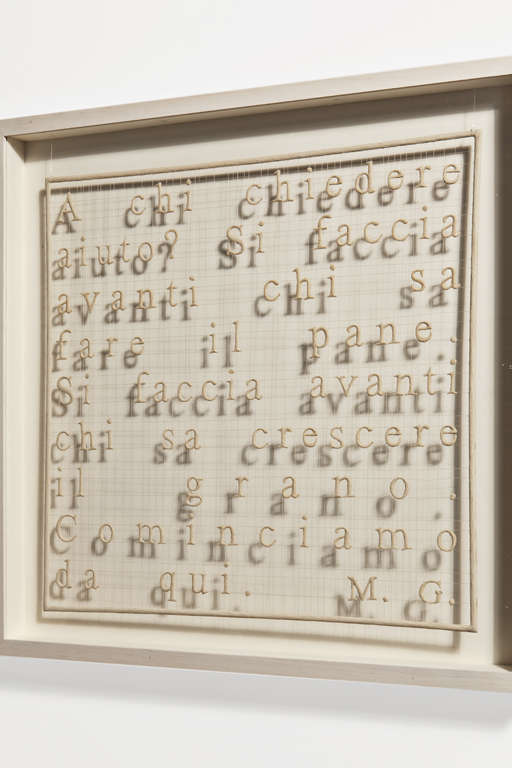 A chi chiedere
aiuto? Si faccia
avanti chi sa
fare il pane.
Si faccia avanti
chi sa crescere
il grano.
Cominciamo
da qui. M. G.